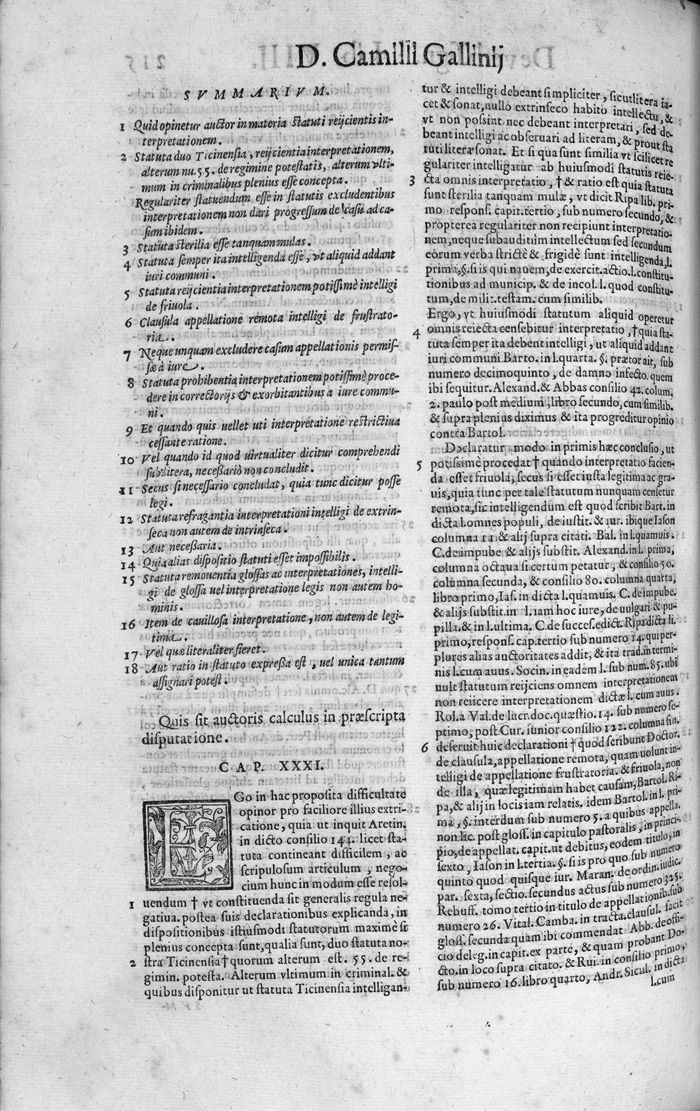 D. Camilli Gallinij
SVMMARIVM.
1 Quid opinetur auctor in materia statuti reijcientis in-
terpretationem.
2 Statuta duo Ticinensia, reijcientia interpretationem,
alterum nu. 55. de regimine potestatis, alterum vlti-
mum in criminalibus plenius esse concepta.
Regulariter statuendum esse in statutis excludentibus
interpretationem non dari progressum de casu ad ca-
sum ibidem.
3 Statuta sterilia esse tanquam mulas.
4 Statuta semper ita intelligenda esse, vt aliquid addant
iuri communi.
5 Statuta reijcientia interpretationem potissimè intelligi
de friuola.
6 Clausula appellatione remota intelligi de frustrato-
ria.
7 Neque unquam excludere casum appellationis permis-
sæ à iure.
8 Statuta prohibentia interpretationem potissimè proce-
dere in correctorijs & exorbitantibus a iure commu-
ni.
9 Et quando quis uellet uti interpretatione restrictiua
cessante ratione.
10 Vel quando id quod uirtualiter dicitur comprehendi
sub litera, necessariò non concludit.
11 Secus si necessario concludat, quia tunc dicitur posse
legi.
12 Statuta refragantia interpretationi intelligi de extrin-
seca non autem de intrinseca.
13 Aut necessaria.
14 Quia alias dispositio statuti esset impossibilis.
15 Statuta remouentia glossas ac interpretationes, intelli-
gi de glossa uel interpretatione legis non autem ho-
minis.
16 Item de cauillosa interpretatione, non autem de legi-
tima.
17 Vel quæ literaliter fieret.
18 Aut ratio in statuto expressa est, uel unica tantum
assignari potest.
Quis sit auctoris calculus in præscripta
disputatione.
CAP. XXXI.
EGo in hac proposita difficultate
opinor pro faciliore illius extri-
catione, quia ut inquit Aretin.
in dicto consilio 144. licet sta-
tuta contineant difficilem, ac
scripulosum articulum, nego-
cium hunc in modum esse resol-
1 uendum † vt constituenda sit generalis regula ne-
gatiua. postea suis declarationibus explicanda, in
dispositionibus istiusmodi statutorum maximè si
plenius concepta sunt, qualia sunt, duo statuta no-
2 stra Ticinensia † quorum alterum est. 55. de re-
gimin. potesta. Alterum vltimum in criminal. &
quibus disponitur ut statuta Ticinensia intelligan-
tur & intelligi debeant simpliciter, sicut litera ia-
cet & sonat, nullo extrinseco habito intellectu, &
vt non possint nec debeant interpretari, sed de-
beant intelligi ac obseruari ad literam, & prout sta
tuti literæ sonat. Et si qua sunt similia vt scilicet re
gulariter intelligatur ab huiusmodi statutis reie-
3 cta omnis interpretatio, † & ratio est quia statuta
sunt sterilia tanquam mulæ, vt dicit Ripa lib. pri-
mo respons. capit. tertio, sub numero secundo, &
propterea regulariter non recipiunt interpretatio-
nem, neque subauditum intellectum sed secundum
eorum verba strictè & frigidè sunt intelligenda, l.
prima, §. si is qui nauem, de exercit. actio. l. constitu-
tionibus ad municip. & de incol. l. quod constitu-
tum, de milit. testam. cum similib.
Ergo, vt huiusmodi statutum aliquid operetur
4 omnis reiecta censebitur interpretatio, † quia sta-
tuta semper ita debent intelligi, ut aliquid addant
iuri communi Barto. in l. quarta. §. prætor ait, sub
numero decimoquinto, de damno infecto. quem
ibi sequitur. Alexand. & Abbas consilio 42. colum.
2. paulo post medium, libro secundo, cum similib.
& supra plenius diximus & ita progreditur opinio
contra Bartol.
Declaratur modo in primis hæc conclusio, ut
5 potissimè procedat † quando interpretatio facien-
da esset friuola, secus si esset iusta legitima ac gra-
uis, quia tunc per tale statutum nunquam censetur
remota, sic intelligendum est quod scribit Bart. in
dicta l. omnes populi, de iustit. & iur. ibique Iason
columna 11. & alij supra citati. Bal. in l. quamuis.
C. de impube. & alijs substit. Alexand. in l. prima,
columna octaua si certum petatur, & consilio 50.
columna secunda, & consilio 80. columna quarta,
libro primo, Ias. in dicta l. quamuis. C. de impube.
& alijs substit. in l. iam hoc iure, de uulgari & pu-
pill. & in l. ultima. C. de succes. edict. Ripa dicta li.
primo, respons. cap. tertio sub numero 14. qui per-
plures alias auctoritates addit, & ita trad. in termi-
nis l. cum auus. Socin. in eadem l. sub num. 85. ubi
uult statutum reijciens omnem interpretationem
non reiicere interpretationem dictæ l. cum auus.
Rol. a Val. de lucr. doc. quæstio. 14. sub numero se-
ptimo, post Cur. iunior consilio 122. columna fin.
6 deseruit huic declarationi † quod scribunt Doctor.
de clausula, appellatione remota, quam uolunt in-
telligi de appellatione frustratoria. & friuola, non
de illa, quæ legitimam habet causam, Bartol. Ri-
pa, & alij in locis iam relatis. idem Bartol. in l. pri-
ma, §. interdum sub numero 5. a quibus appella.
non lic. post gloss. in capitulo pastoralis, in princi-
pio, de appellat. capit. ut debitus, eodem titulo, in
sexto, Iason in l. tertia. §. si is pro quo sub numero
quinto quod quisque iur. Maran. de ordin. iudic.
par. sexta, sectio. secundus actus sub numero 325.
Rebuff. tomo tertio in titulo de appellationib. sub
numero 26. Vital. Camba. in tracta. clausul. facit
gloss. secunda quam ibi commendat Abb. de offi-
cio deleg. in capit. ex parte, & quam probant Do-
cto. in loco supra citato. & Rui. in consilio primo,
sub numero 16. libro quarto, Andr. Sicul. in dicta
l. cum